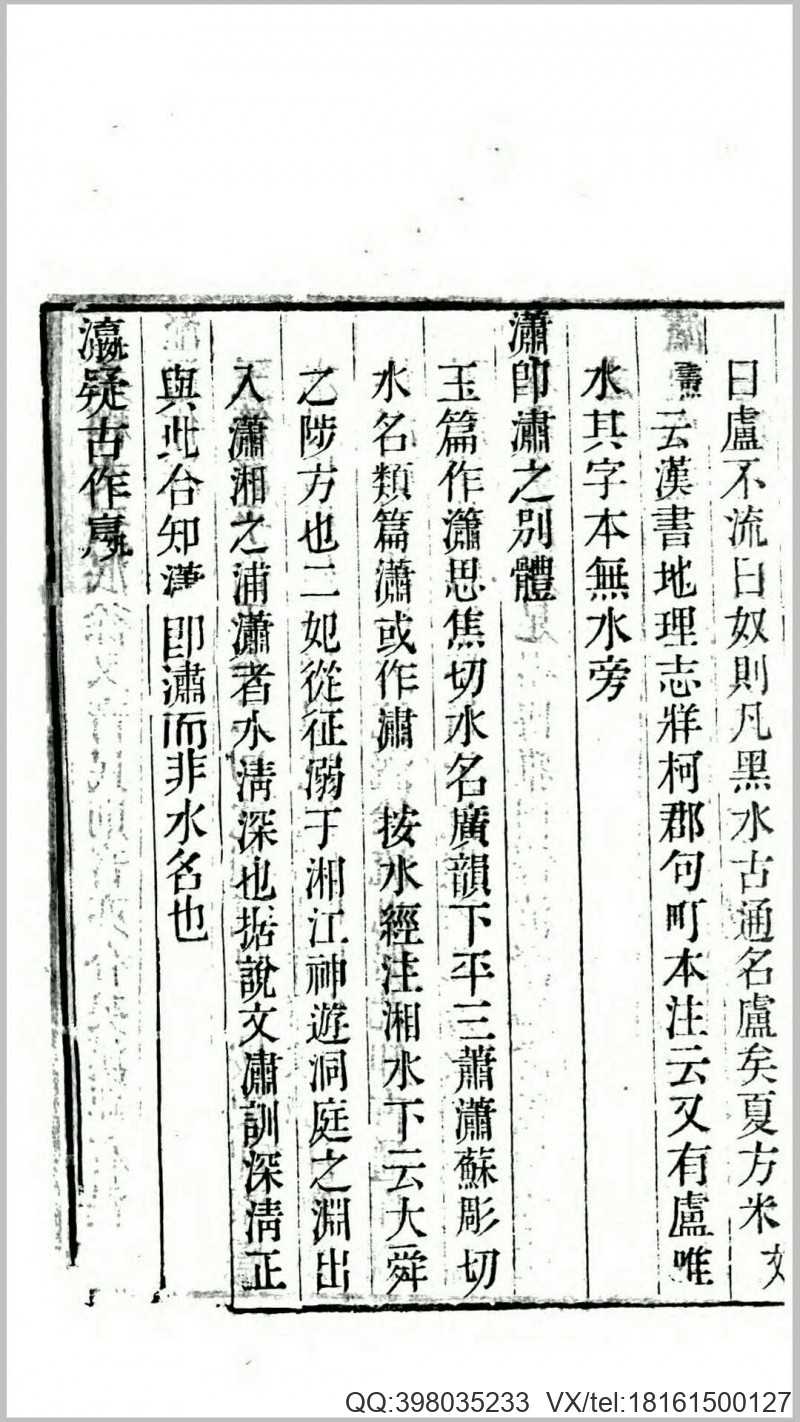 曰盧不流曰奴則凡黑水古通名盧矣夏方米
云漢書地理志牂柯郡句町本注云又有盧唯
水其字本無水旁
瀟即潚之別體
玉篇作瀟思焦切水名廣韻下平三蕭瀟蘇彫切
水名類篇瀟或作潚 按水經注湘水下云大舜
之陟方也二妃從征溺于湘江神遊洞庭之淵出
入瀟湘之浦瀟者水清深也据說文潚訓深清正
與此合知 即潚而非水名也
瀛疑古作嬴
QQ:398035233 VX/tel:18161500127